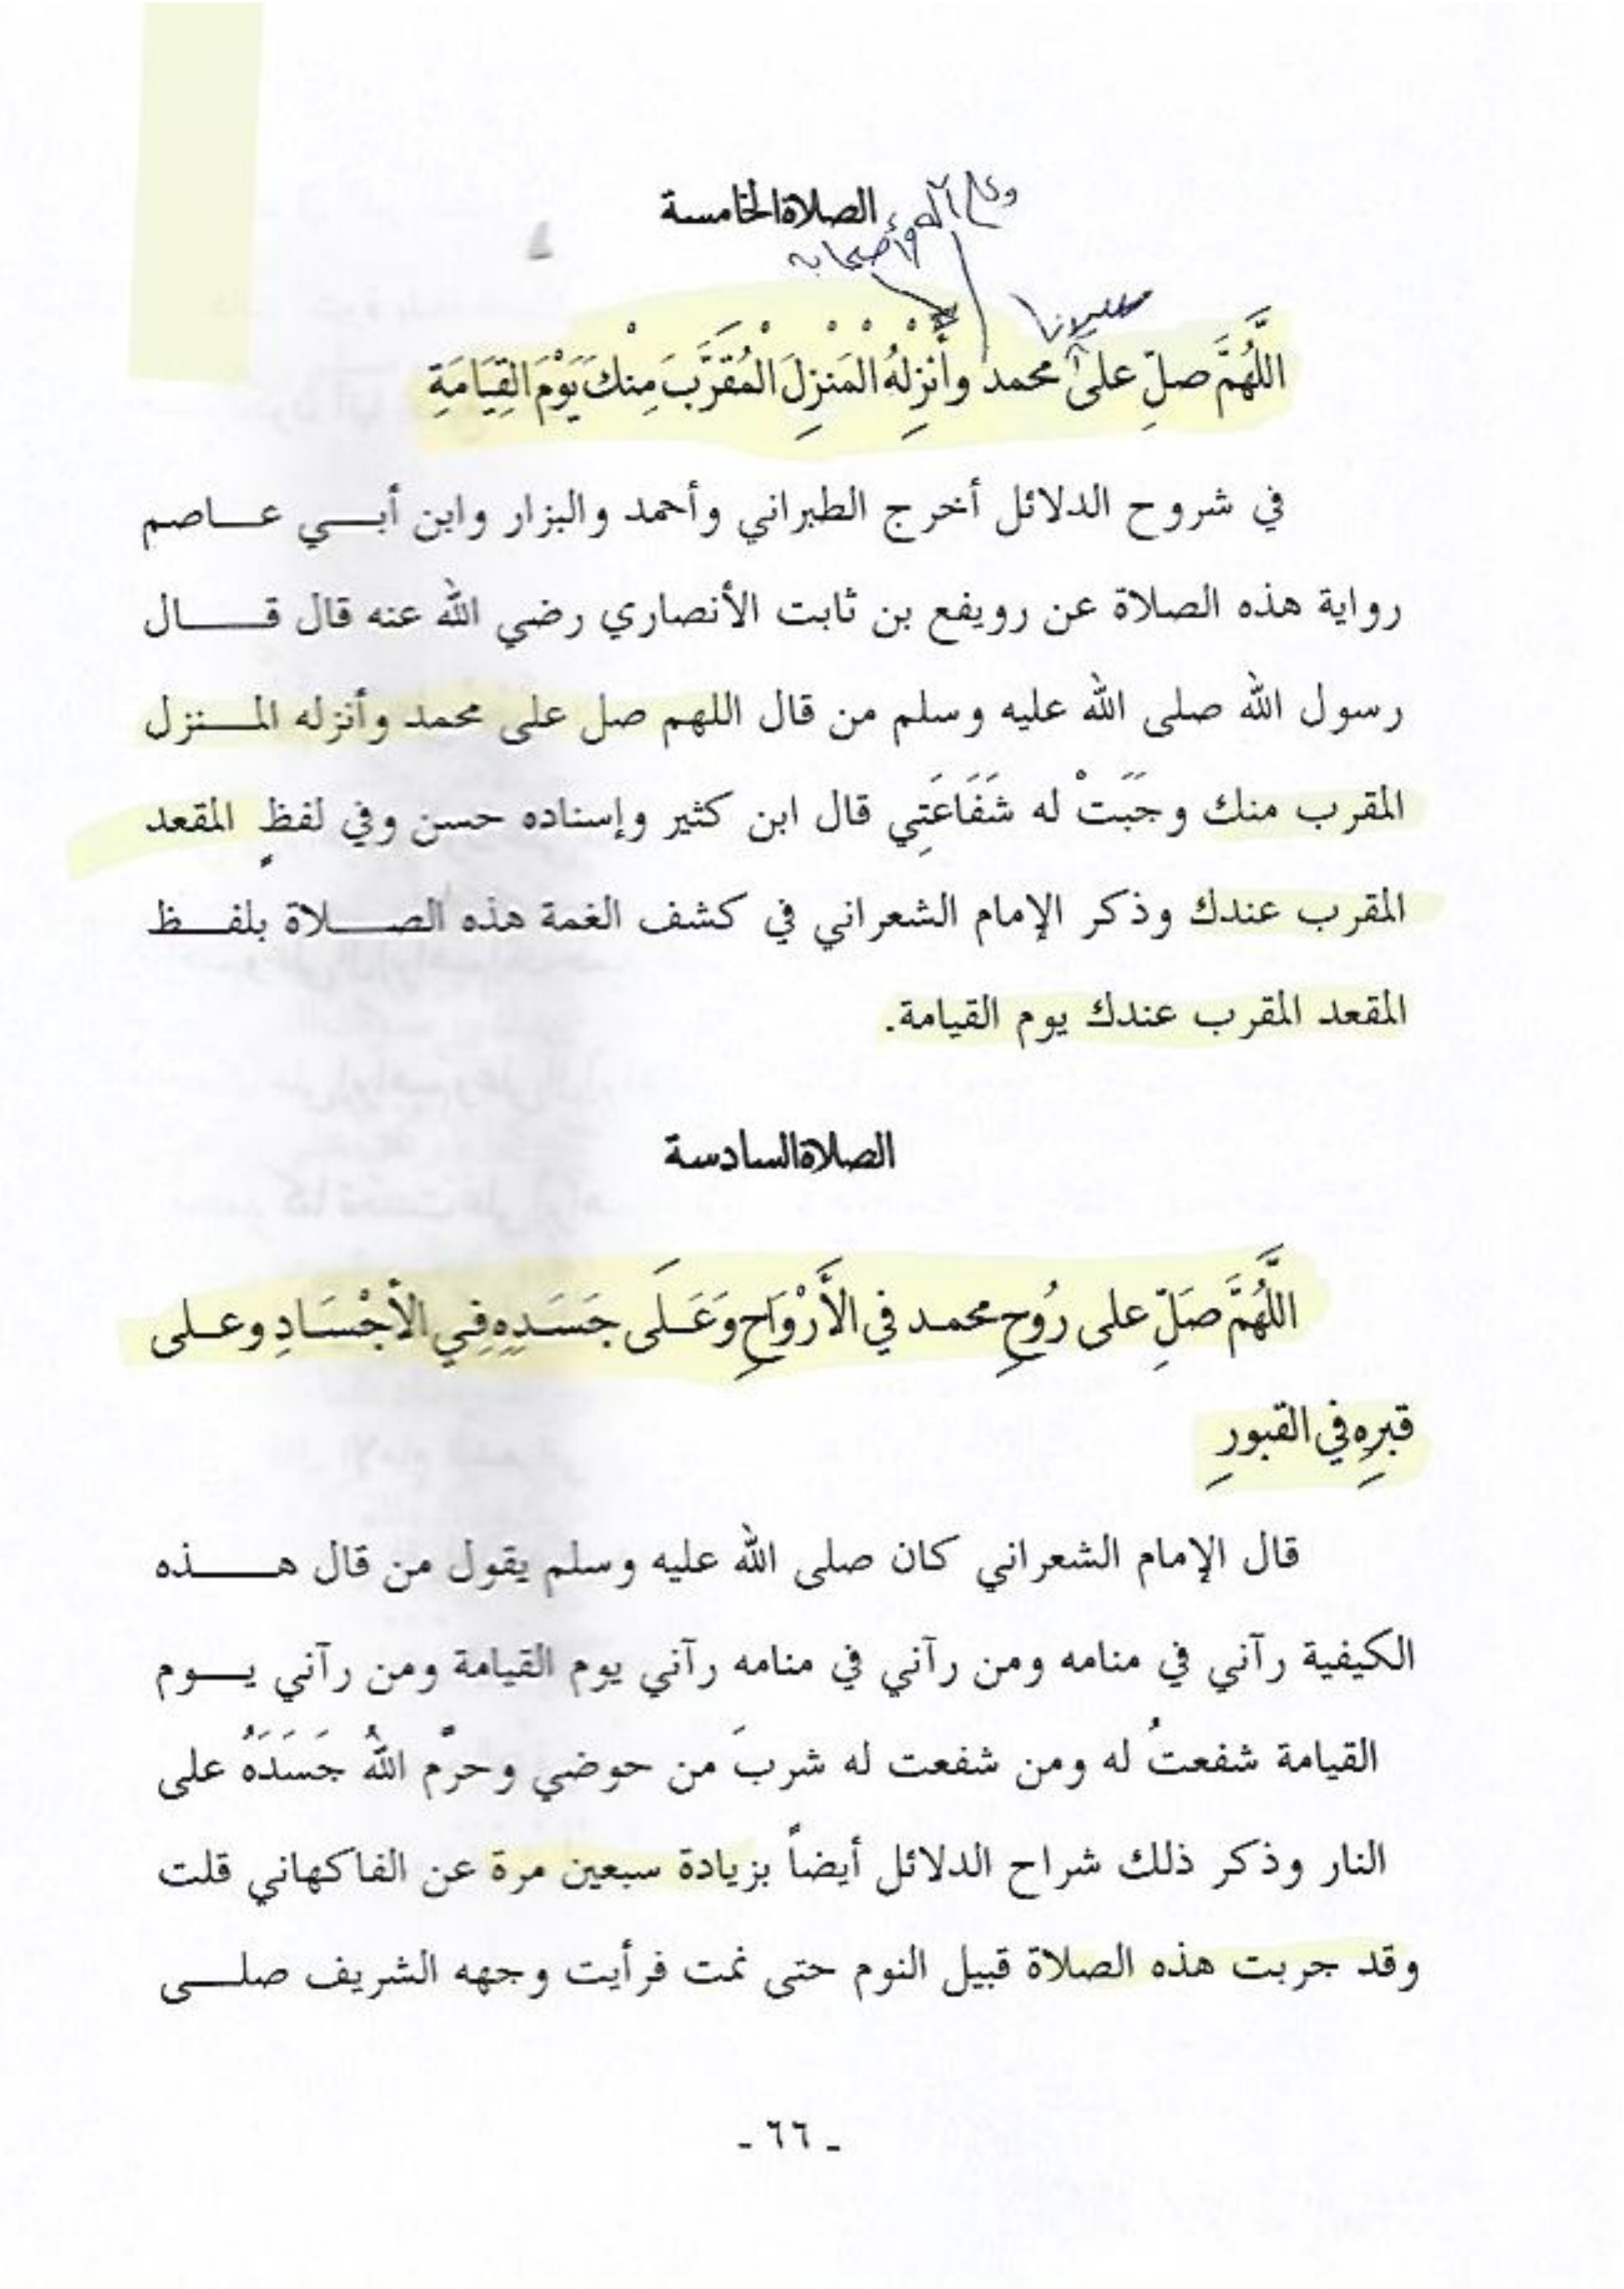 الصلاة الخامسة
وعلى آله
وأصحابه
سيدنا
اللَّهُمَّ صلِّ على محمد وأَنْزِلْهُ الْمَنْزِلَ الْمُقَرَّبَ مِنْكَ يَوْمَ القِيَامَةِ
في شروح الدلائل أخرج الطبراني وأحمد والبزار وابن أبي عاصم
رواية هذه الصلاة عن رويفع بن ثابت الأنصاري رضي الله عنه قال قال
رسول الله صلى الله عليه وسلم من قال اللهم صل على محمد وأنزله المنزل
المقرب منك وجَبَتْ له شَفَاعَتِي قال ابن كثير وإسناده حسن وفي لفظٍ المقعد
المقرب عندك وذكر الإمام الشعراني في كشف الغمة هذه الصلاة بلفظ
المقعد المقرب عندك يوم القيامة.
الصلاة السادسة
اللَّهُمَّ صَلِّ على رُوُحِ محمد في الأَرْوَاحِ وَعَلَى جَسَدِهِ فِي الأَجْسَادِ وعلى
قبرِهِ في القبورِ
قال الإمام الشعراني كان صلى الله عليه وسلم يقول من قال هذه
الكيفية رآني في منامه ومن رآني في منامه رآني يوم القيامة ومن رآني يوم
القيامة شفعتُ له ومن شفعت له شربَ من حوضي وحرَّم اللهُ جَسَدَهُ على
النار وذكر ذلك شراح الدلائل أيضاً بزيادة سبعين مرة عن الفاكهاني قلت
وقد جربت هذه الصلاة قبيل النوم حتى نمت فرأيت وجهه الشريف صلى
- ٦٦ -